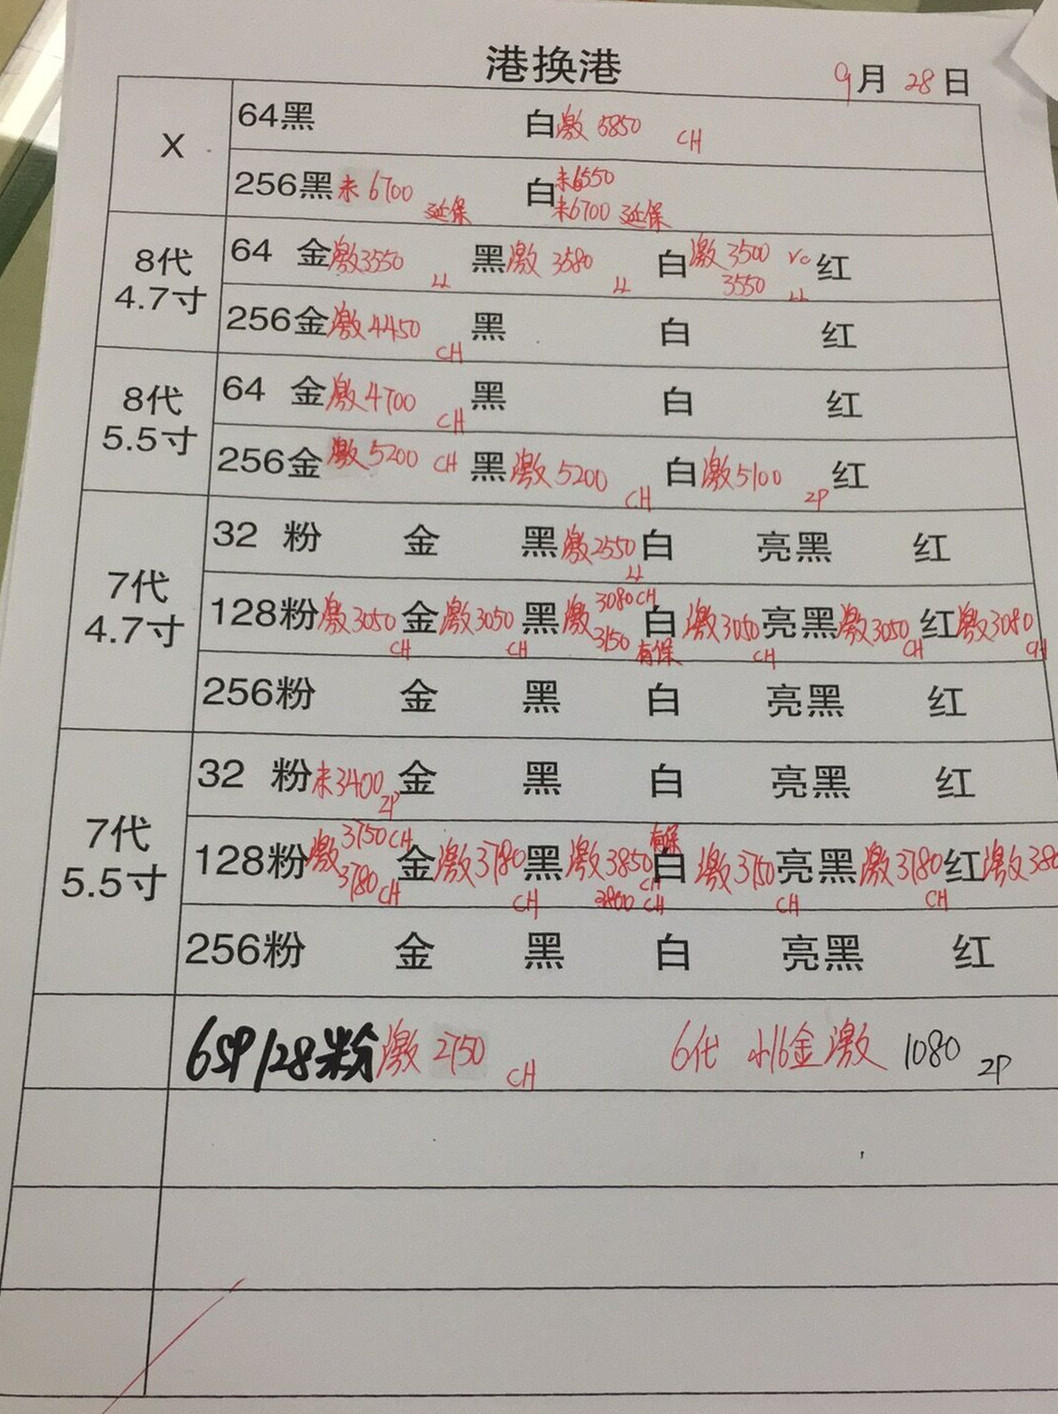 港换港 9月28日
X
64黑 白激5850 CH
256黑未6700 延保 白未6550
未6700 延保
8代
4.7寸
64 金激3550 LL 黑激3580 LL 白激3500 VC 红
3550 LL
256金激4450 CH 黑 白 红
8代
5.5寸
64 金激4700 CH 黑 白 红
256金激5200 CH 黑激5200 CH 白激5100 ZP 红
7代
4.7寸
32 粉 金 黑激2550 LL 白 亮黑 红
128粉激3050 CH 金激3050 CH 黑激3080CH 白激3050 CH 亮黑激3050 CH 红激3080 CH
3150 有保
256粉 金 黑 白 亮黑 红
7代
5.5寸
32 粉未3400 ZP 金 黑 白 亮黑 红
128粉激3750CH 金激3780 CH 黑激3850 有保 白激3750 CH 亮黑激3780 CH 红激380
3780 CH 3800 CH
256粉 金 黑 白 亮黑 红
6SP128粉激2750 CH 6代 小16金激 1080 ZP